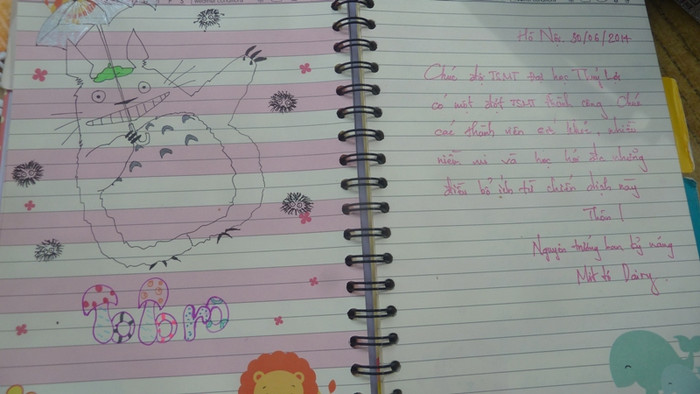 Totoro
Hà Nội, 30/06/2014
Chúc đội TSMT Đại học Thuỷ Lợi
có một đợt TSMT thành công. Chúc
các thành viên sức khoẻ, nhiều
niềm vui và học hỏi được những
điều bổ ích từ chiến dịch này
Thân!
Nguyên trưởng ban kỹ năng